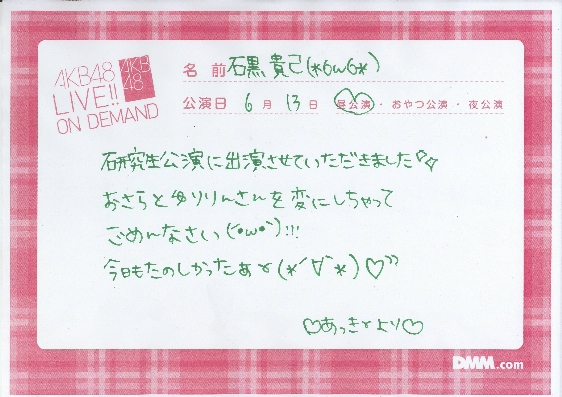 AKB48
LIVE!!
ON DEMAND
AKB
48
名 前 石黒貴己(*6ω6*)
公演日 6 月 13 日 昼公演・おやつ公演・夜公演
研究生公演に出演させていただきました
おさらとゆりりんさんを変にしちゃって
ごめんなさい(´・ω・`)!!!
今日もたのしかったあ(*´∇`*)♡"
♡あっきよより♡
DMM.com